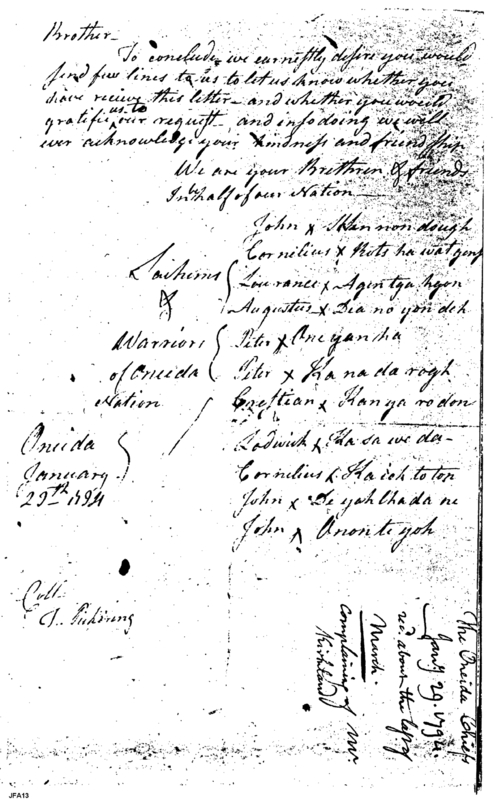 Brother—
To conclude, we earnestly desire you would
send few lines to us to let us know whether you
have recieve this letter— and whether you would
gratifie us to our request— and in so doing we will
ever acknowledge your kindness and friendship
We are your Brethren & friends
In behalf of our Nation—
John x Skennondough
Cornilius x Kots ha wat
Sachims
&
Lourance x Agentga hyon
Augustus x Dia no yon deh
Warriors
of Oneida
Nation
Peter x One yan ha
Peter x Ka na da rogh
Crestian x Kan ya ro don
Lodwick x Ka sa we da—
Cornilius x Ka ieh to ton
John x De yah lha da ne
John x Anon te yoh
Oneida
January
29th 1794
Coll.
T. Pickering
The Oneida Chiefs
Jany 29. 1794.
recd. about the last of
March.
Complaining of Mr.
Kirkland
JFA13